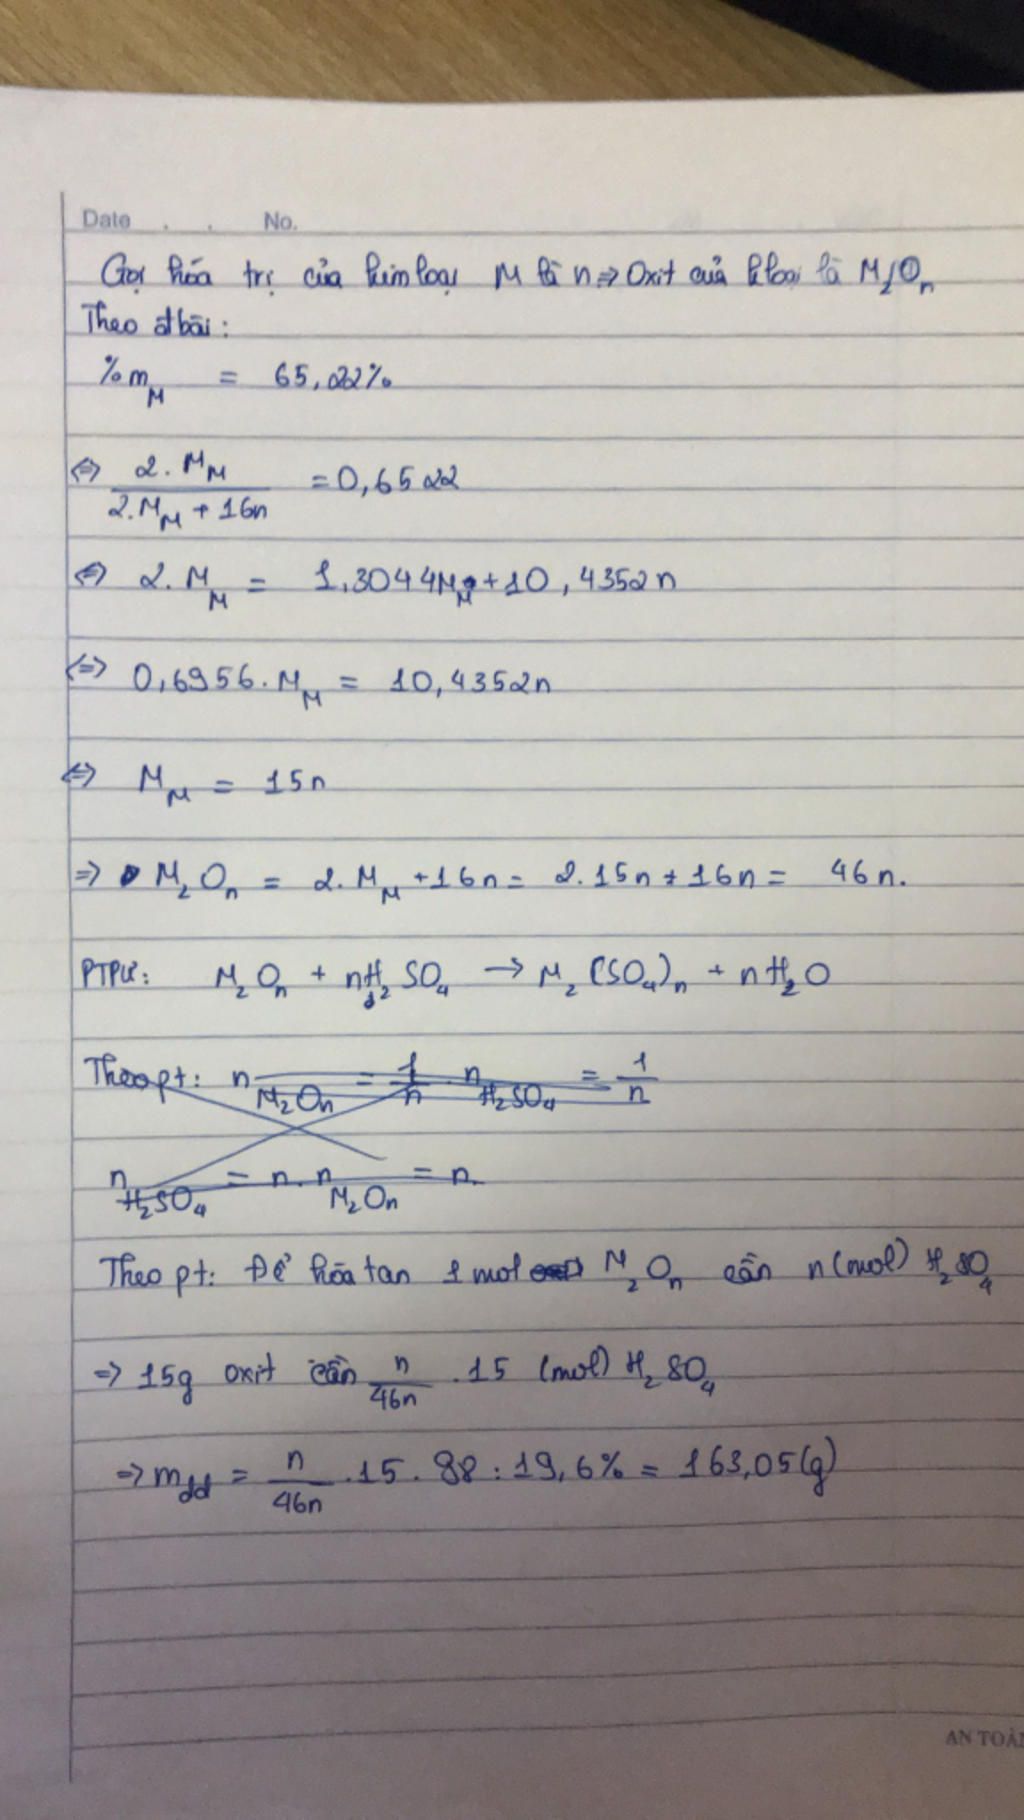 Date . . No.
Gọi hóa trị của kim loại M là n => Oxit của k.loại là M₂Oₙ
Theo đbài:
%m_M = 65,22%
<=> 2.M_M / (2.M_M + 16n) = 0,6522
<=> 2.M_M = 1,3044M_M + 10,4352n
<=> 0,6956.M_M = 10,4352n
<=> M_M = 15n
=> M₂Oₙ = 2.M_M + 16n = 2.15n + 16n = 46n.
PTPƯ: M₂Oₙ + nH₂SO₄ → M₂(SO₄)ₙ + nH₂O
Theo pt: n_M₂Oₙ = 1/n . n_H₂SO₄ = 1/n
n_H₂SO₄ = n. n_M₂Oₙ = n.
Theo pt: Để hòa tan 1 mol M₂Oₙ cần n (mol) H₂SO₄
=> 15g oxit cần n/46n .15 (mol) H₂SO₄
=> m_dd = n/46n .15 . 98 : 19,6% = 163,05(g)
AN TOÀN